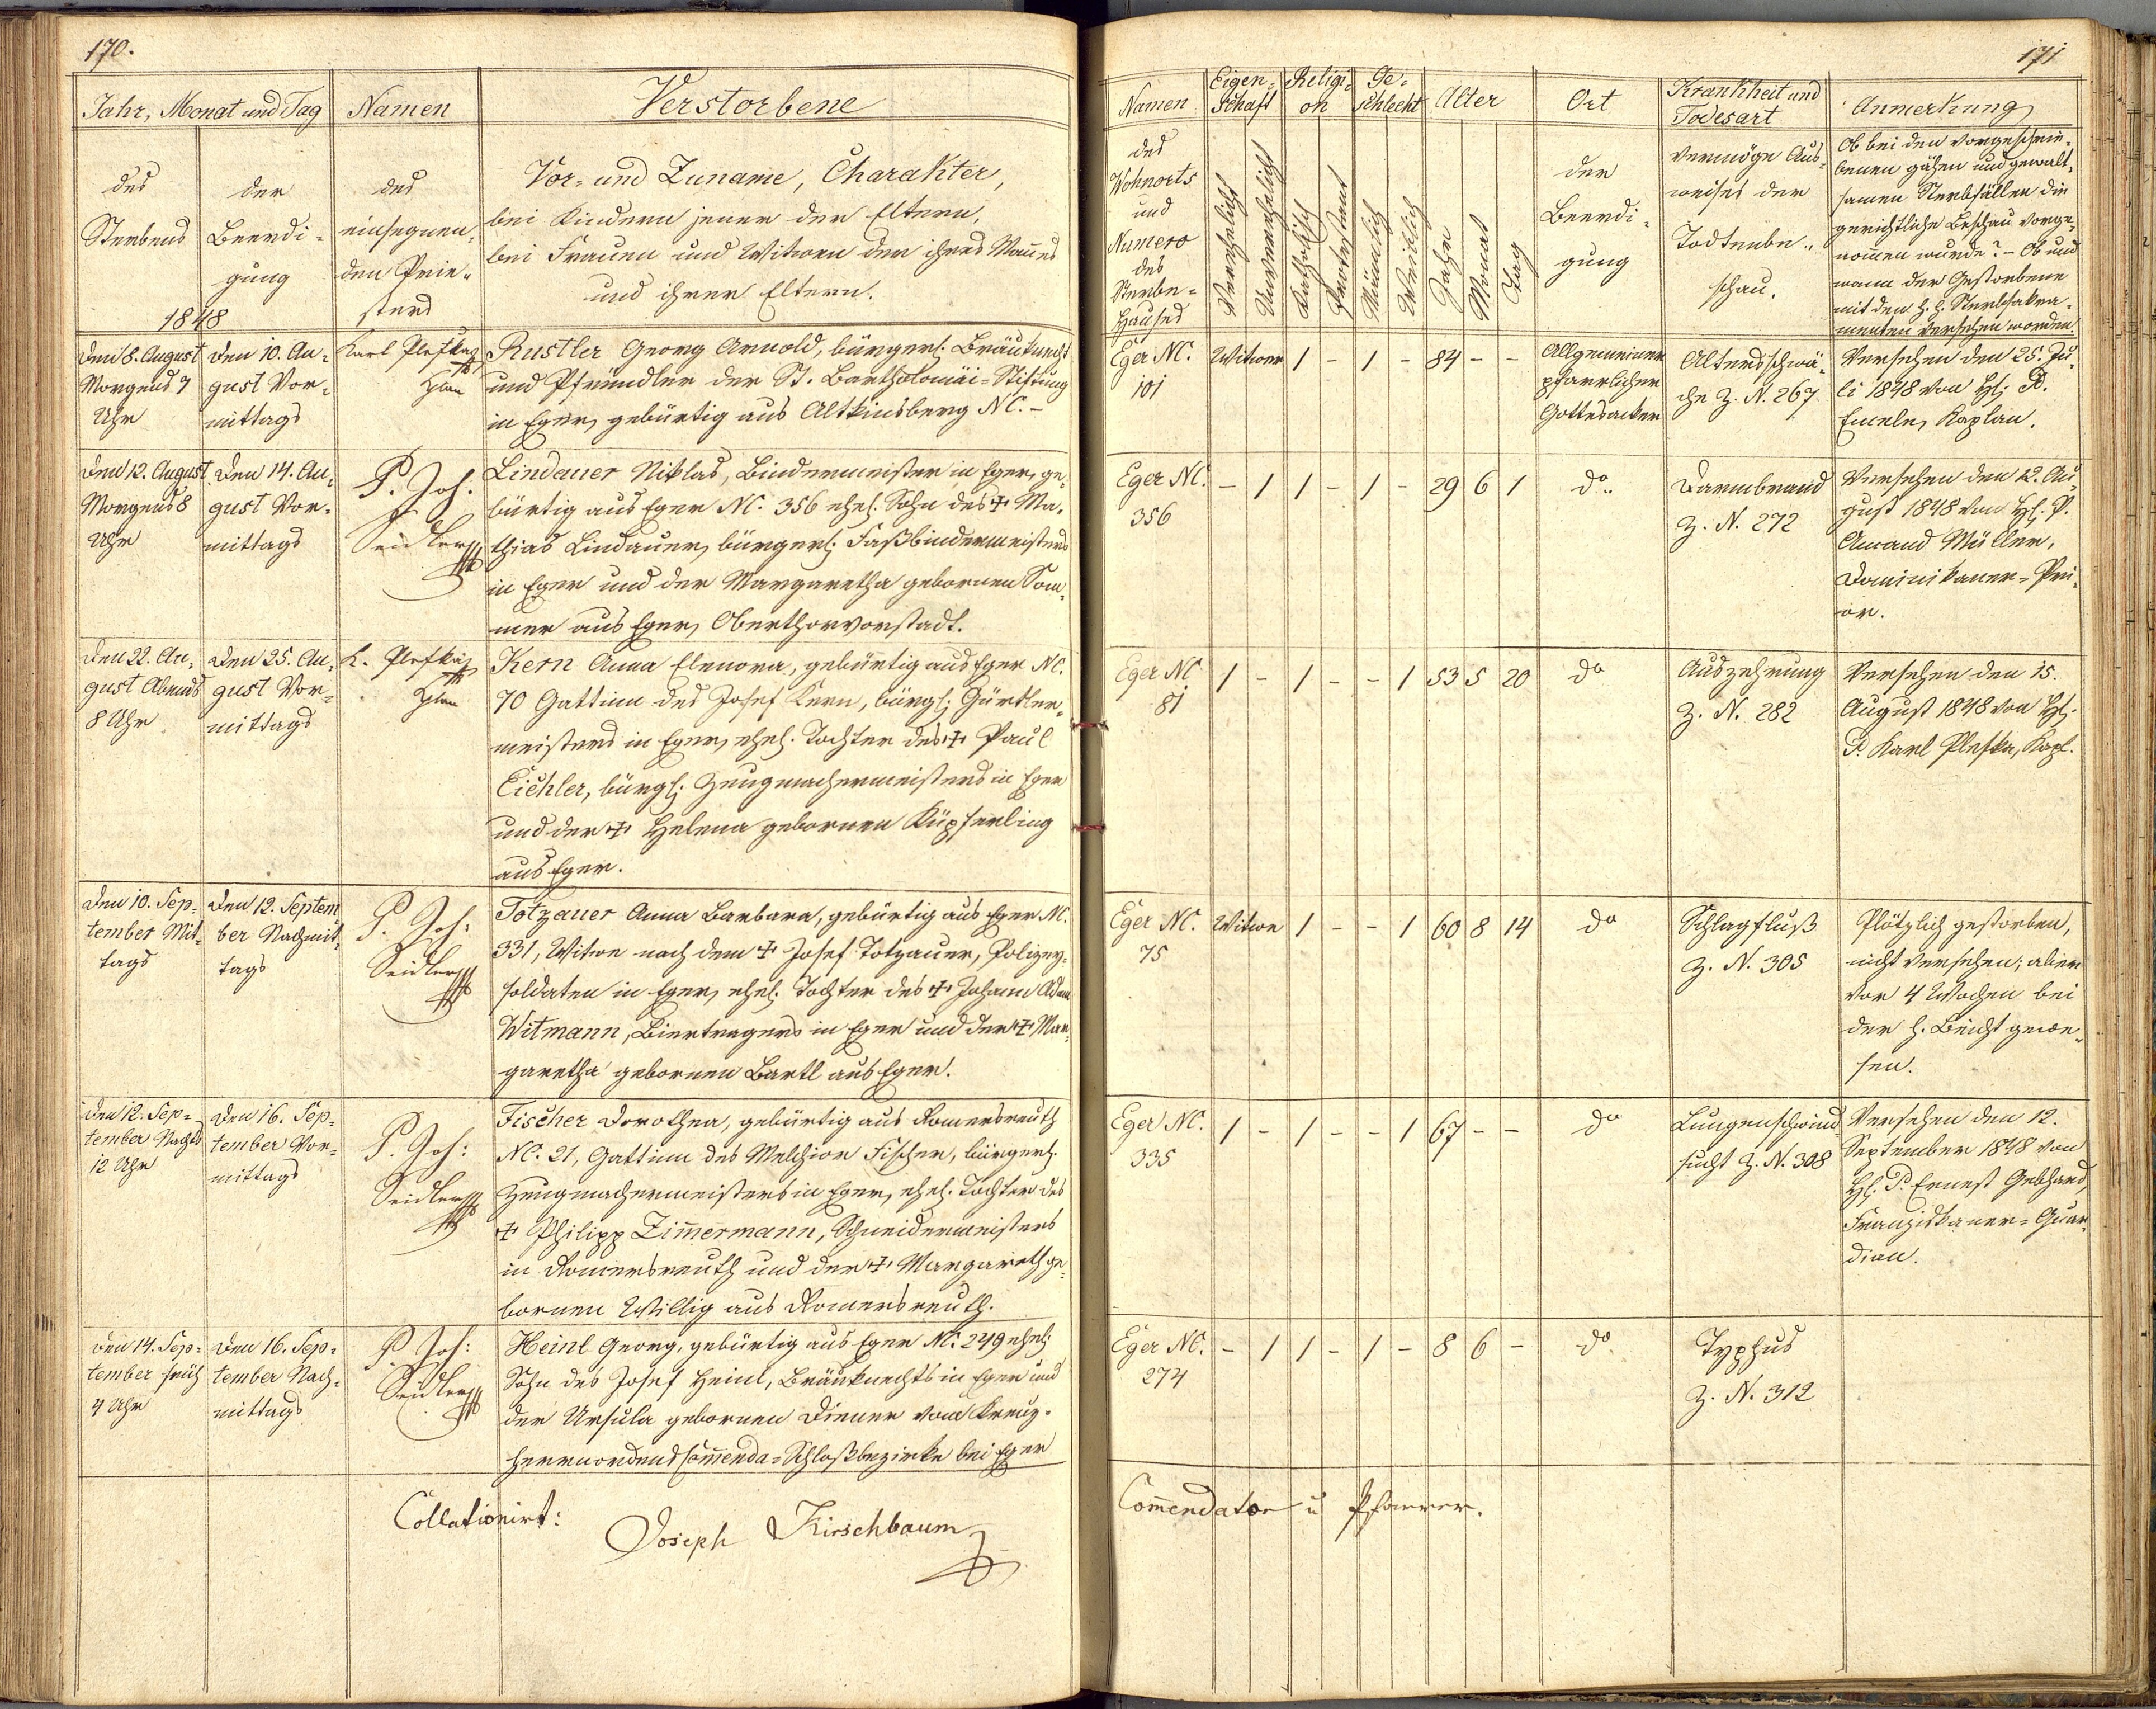 170.
Jahr, Monat und Tag
Namen
Verstorbene
des
Sterbens
der
Beerdi-
gung
1848
des
einsegnen-
den Prie-
sters
Vor- und Zuname, Charakter,
bei Kindern jener der Eltern,
bei Frauen und Witwen der ihres Mannes
und ihrer Eltern.
den 8. August
Morgens 7
Uhr
den 10. Au-
gust Vor-
mittags
Karl Plefka
Kplan
Rustler Georg Arnold, bürgerl. Bräuknecht
und Pfründler der St. Bartholomäi-Stiftung
in Eger, gebürtig aus Altkinsberg NC. -
den 12. August
Morgens 8
Uhr
den 14. Au-
gust Vor-
mittags
P. Joh.
Seidler
Lindauer Niklas, Bindermeister in Eger, ge-
bürtig aus Eger NC. 356 ehel. Sohn des + Ma-
thias Lindauer, bürgerl. Faßbindermeisters
in Eger und der Margaretha gebornen Som-
mer aus Eger, Oberthorvorstadt.
den 22. Au-
gust Abends
8 Uhr
den 25. Au-
gust Vor-
mittags
K. Plefka
Kplan
Kern Anna Elenora, gebürtig aus Eger NC.
70 Gattinn des Josef Kern, bürgl. Gürtler-
meisters in Eger, ehel. Tochter des + Paul
Eichler, bürgl. Zeugmachermeisters in Eger
und der + Helena gebornen Küpferling
aus Eger.
den 10. Sep-
tember Mit-
tags
den 12. Septem-
ber Nachmit-
tags
P. Joh:
Seidler
Totzauer Anna Barbara, gebürtig aus Eger NC.
331, Witwe nach dem + Josef Totzauer, Polizey-
soldaten in Eger, ehel. Tochter des + Johann Adam
Witmann, Biertragers in Eger und der + Mar-
garetha gebornen Bartl aus Eger.
den 12. Sep-
tember Nachts
12 Uhr
den 16. Sep-
tember Vor-
mittags
P. Joh:
Seidler
Fischer Dorothea, gebürtig aus Romersreuth
NC. 21, Gattinn des Melchior Fischer, bürgerl.
Zeugmachermeisters in Eger, ehel. Tochter des
+ Philipp Zim̅ermann, Schneidermeisters
in Romersreuth und der + Margareth ge-
bornen Willig aus Romersreuth.
den 14. Sep-
tember früh
4 Uhr
den 16. Sep-
tember Nach-
mittags
P. Joh:
Seidler
Heinl Georg, gebürtig aus Eger NC. 249 ehel.
Sohn des Josef Heinl, Bräuknechts in Eger und
der Ursula gebornen Diener vom Kreuz-
herrnordens Com̅enda-Schloßbezirke bei Eger
Collationirt:
Joseph Kirschbaum
171
Namen
Eigen-
schaft
Religi-
on
Ge-
schlecht
Alter
Ort
Krankheit und
Todesart
Anmerkung
des
Wohnorts
und
Numero
des
Sterbe-
Hauses
Verehelicht
Unverehelicht
Katholisch
Protestant
Männlich
Weiblich
Jahr
Monat
Tag
der
Beerdi-
gung
vermöge Aus-
weises der
Todtenbe-
schau.
Ob bei den vorgeschrie-
benen gähen und gewalt-
samen Sterbfällen die
gerichtliche Beschau vorge-
nom̅en wurde? - Ob und
wann der Gestorbene
mit den h. h. Sterbsakra-
menten versehen worden.
Eger NC.
101
Witwer 1 - 1 - 84 - -
Allgemeiner
pfarrlicher
Gottesacker
Altersschwä-
che Z. N. 267
Versehen den 25. Ju-
li 1848 von H. P.
Kaplan.
Eger NC.
356
- 1 1 - 1 - 29 6 1 do.
Darmbrand
Z. N. 272
Versehen den 12. Au-
gust 1848 von H. P.
Amand Müller,
Dominikaner-Pri-
or.
Eger NC
81
1 - 1 - - 1 53 5 20 do
Auszehrung
Z. N. 282
Versehen den 15.
August 1848 von H.
P. Karl Plefka, Kapl.
Eger NC.
75
Witwe 1 - - 1 60 8 14 do
Schlagfluß
Z. N. 305
Plötzlich gestorben,
nicht versehen; aber
vor 4 Wochen bei
der h. Beicht gewe-
sen.
Eger NC.
335
1 - 1 - - 1 67 - - do
Lungenschwind-
sucht Z. N. 308
Versehen den 12.
September 1848 von
H. P. Ernest Gebhard,
Franziskaner-Guar-
dian.
Eger NC.
274
- 1 1 - 1 - 8 6 - do
Typhus
Z. N. 312
Com̅endator u Pfarrer.